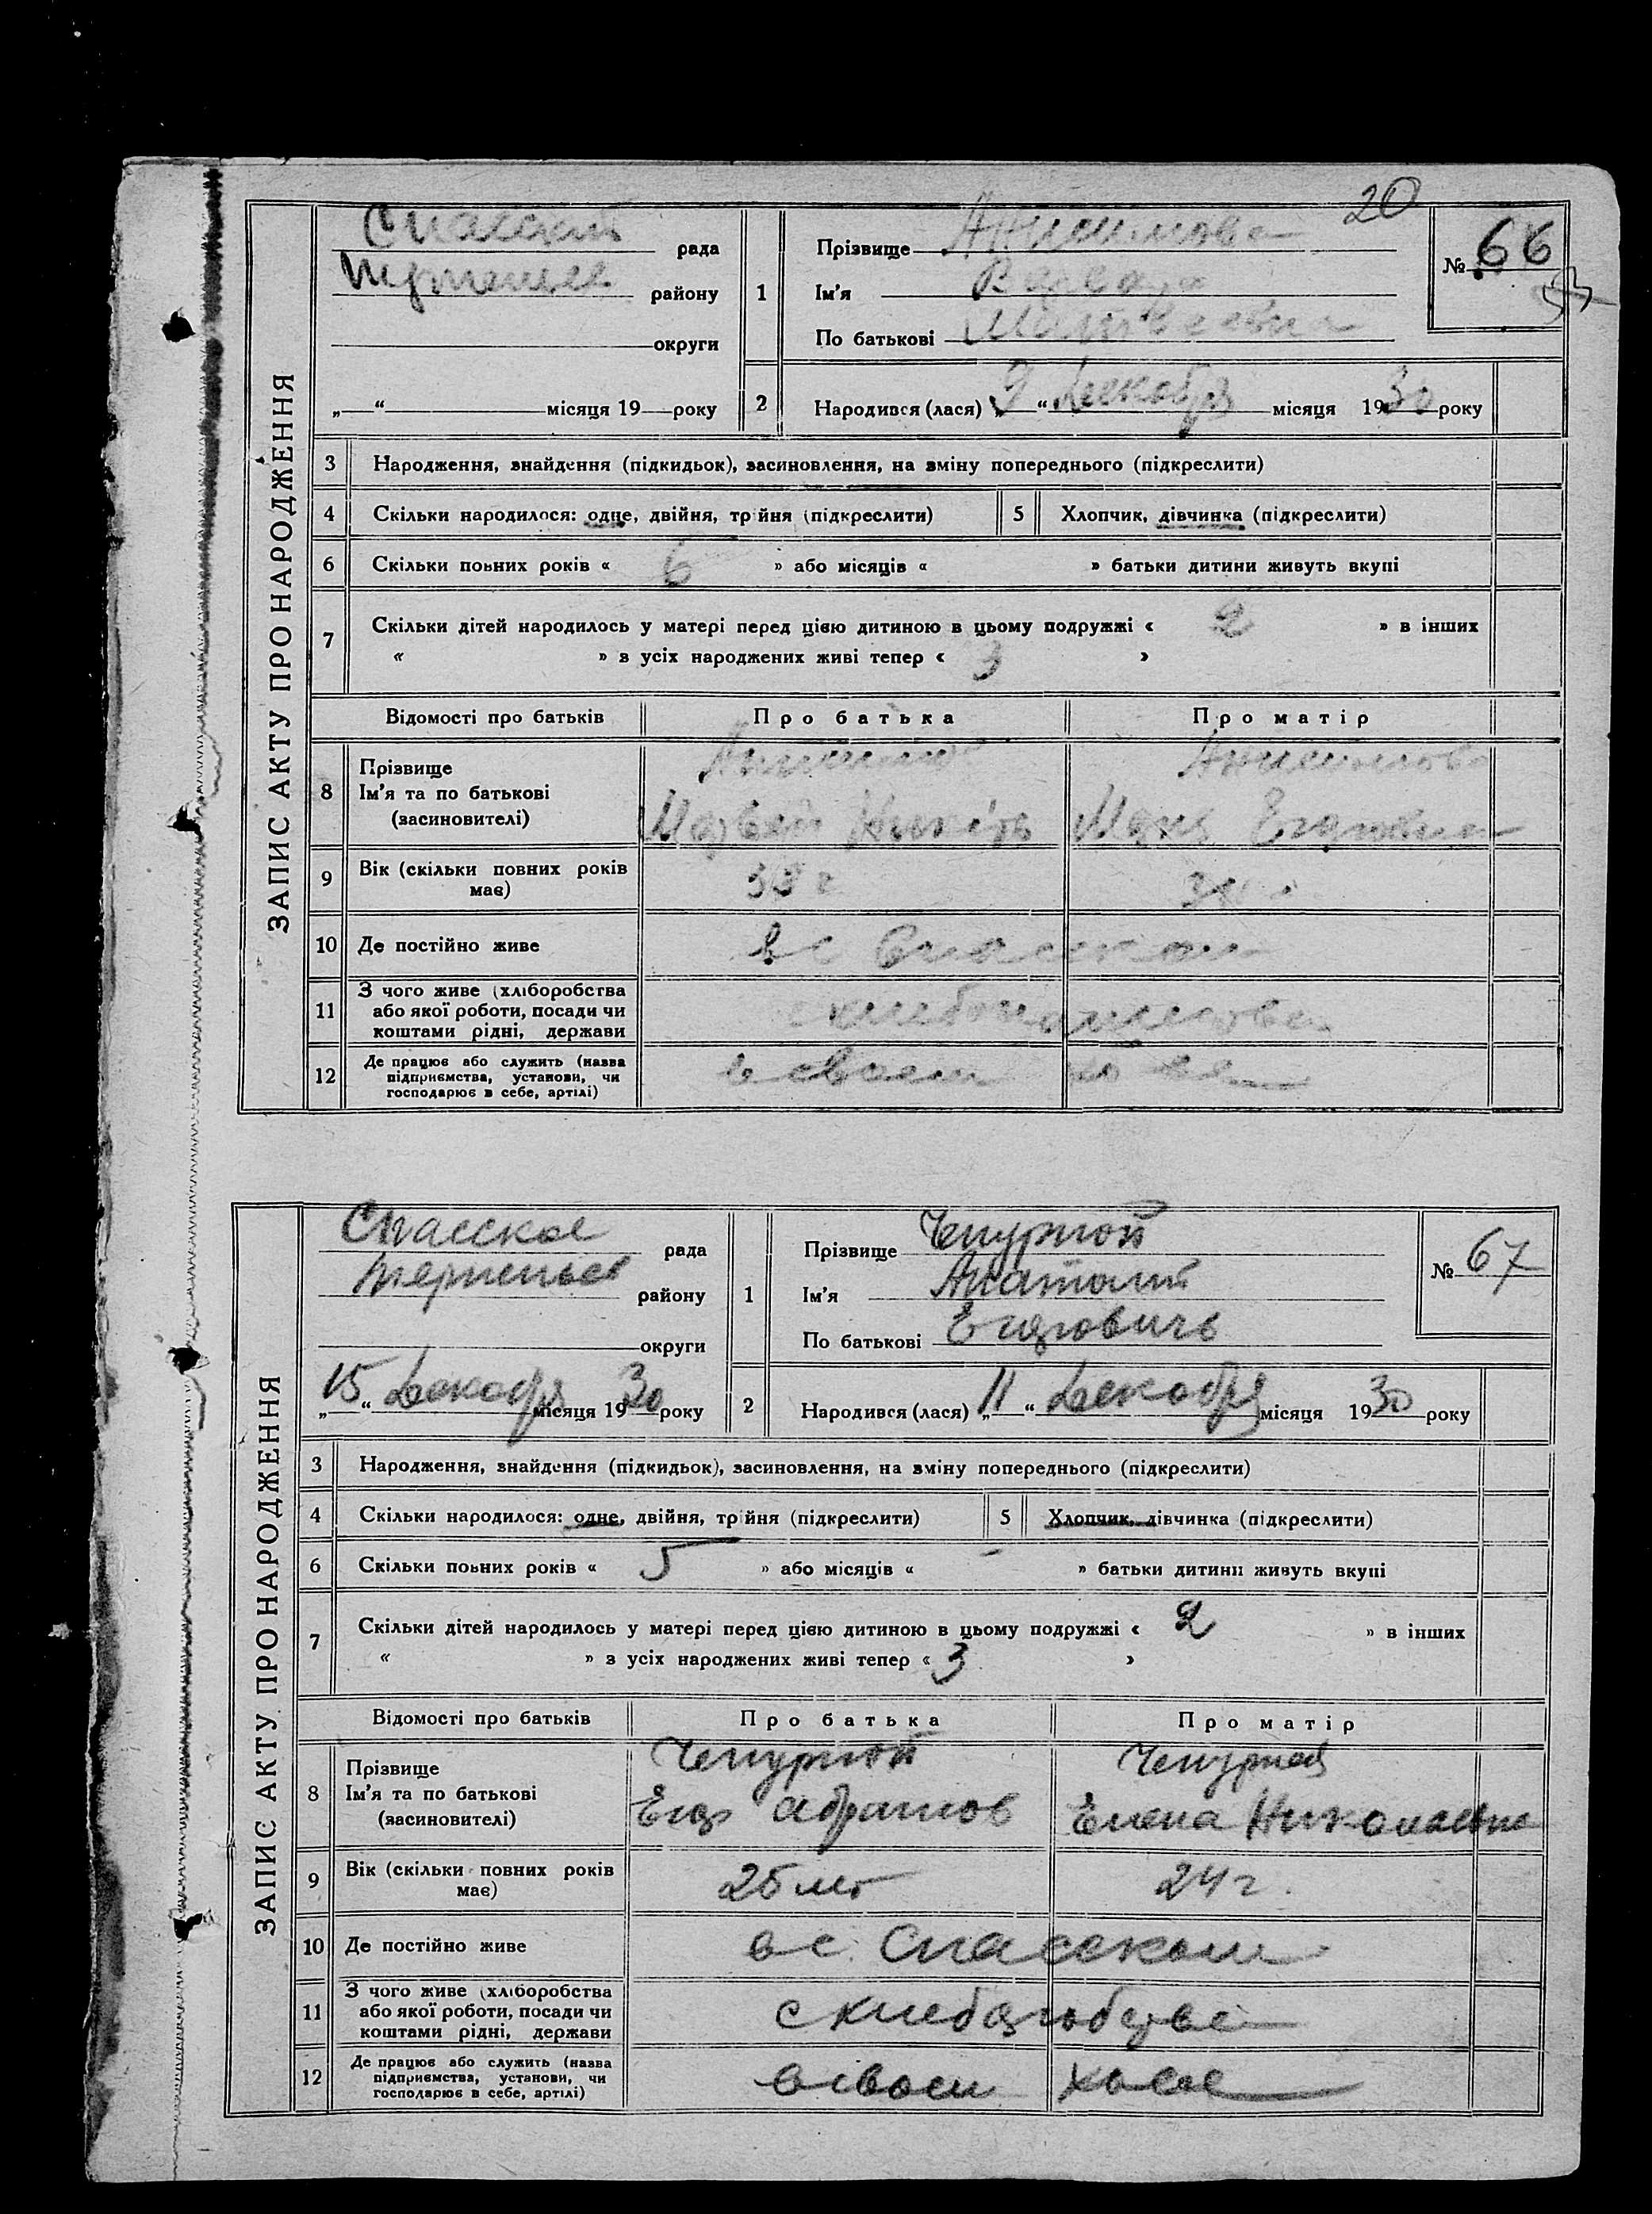 20
ЗАПИС АКТУ ПРО НАРОДЖЕННЯ
рада
району
округи
„ “ місяця 19 року
1
Прізвище Анисимова
Ім'я Варвара
По батькові Матвеевна
№ 66
2
Народився (лася) „9“ Декабря місяця 1930 року
3 Народження, знайдення (підкидьок), засиновлення, на зміну попереднього (підкреслити)
4 Скільки народилося: одне, двійня, трійня (підкреслити)
5 Хлопчик, дівчинка (підкреслити)
6 Скільки повних років « 6 » або місяців « » батьки дитини живуть вкупі
7 Скільки дітей народилось у матері перед цією дитиною в цьому подружжі « 2 » в інших
« » з усіх народжених живі тепер « 3 »
Відомості про батьків Про батька Про матір
8 Прізвище
Ім'я та по батькові
(засиновителі)
Анисимова
9 Вік (скільки повних років має)
10 Де постійно живе
в с Спасском
11 З чого живе (хліборобства
або якої роботи, посади чи
коштами рідні, держави
12 Де працює або служить (назва
підприємства, установи, чи
господарює в себе, артілі)
в своем
ЗАПИС АКТУ ПРО НАРОДЖЕННЯ
Спасское рада
району
округи
„15“ Декабря місяця 1930 року
1
Прізвище Чепурной
Ім'я Анатолий
По батькові Егорович
№ 67
2
Народився (лася) „11“ Декабря місяця 1930 року
3 Народження, знайдення (підкидьок), засиновлення, на зміну попереднього (підкреслити)
4 Скільки народилося: одне, двійня, трійня (підкреслити)
5 Хлопчик, дівчинка (підкреслити)
6 Скільки повних років « 5 » або місяців « - » батьки дитини живуть вкупі
7 Скільки дітей народилось у матері перед цією дитиною в цьому подружжі « 2 » в інших
« » з усіх народжених живі тепер « 3 »
Відомості про батьків Про батька Про матір
8 Прізвище
Ім'я та по батькові
(засиновителі)
Чепурной
Егор Абрамов
Чепурная
Елена Николаевна
9 Вік (скільки повних років має)
25 лет
24 г.
10 Де постійно живе
в с. Спасском
11 З чого живе (хліборобства
або якої роботи, посади чи
коштами рідні, держави
12 Де працює або служить (назва
підприємства, установи, чи
господарює в себе, артілі)
в своем